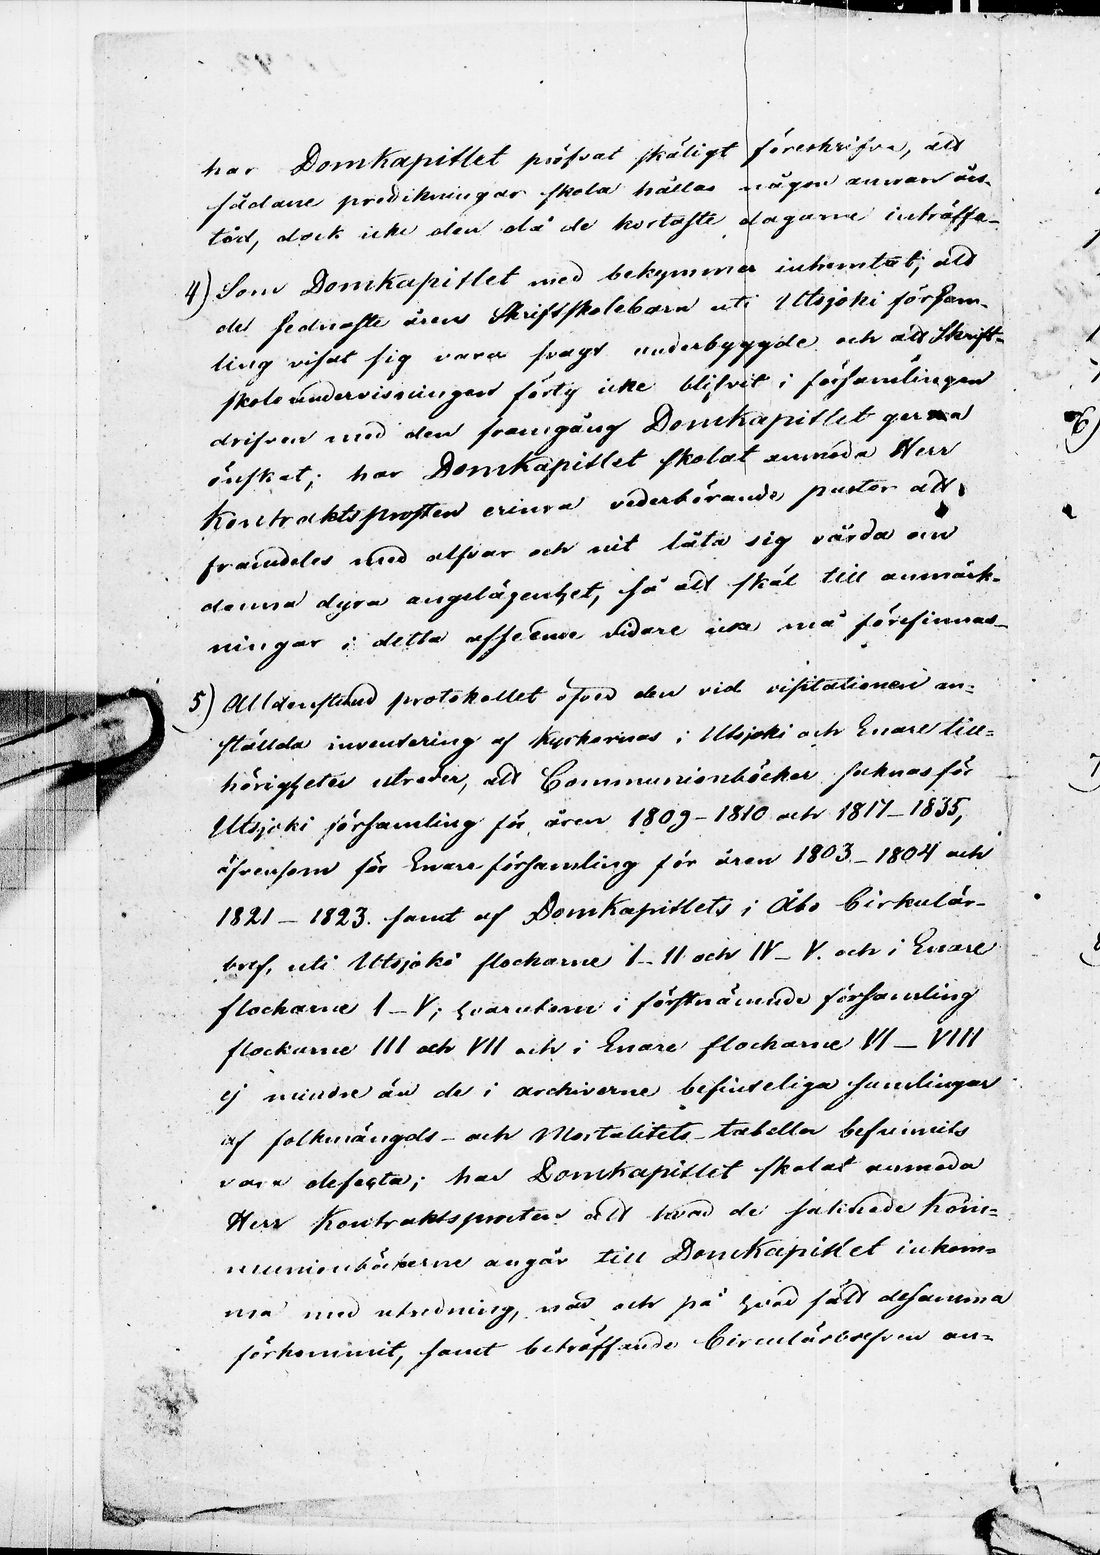 har Domkapitlet pröfvat skäligt föreskrifva, att
sådane predikningar skola hållas någon annan års-
tid, dock icke den då de kortaste dagarne inträffa.
4) Som Domkapitlet med bekymmer inhemtat, att
de sednaste årens Skriftskolebarn uti Utsjoki försam-
ling visat sig vara svagt underbyggde och att Skrift-
skoleundervisningen förty icke blifvit i församlingen
drifven med den framgång Domkapitlet gerna
önskat; har Domkapitlet skolat anmoda Herr
Kontraktsprosten erinra vederbörande pastor att
framdeles med alfvar och nit låta sig vårda om
denna dyra angelägenhet, så att skäl till anmärk-
ningar i detta afseende vidare icke må förefinnas.
5) Alldenstund protokollet öfver den vid visitationen an-
ställda inventering af Kyrkornas i Utsjoki och Enare till-
hörigheter utreder, att Communionböcker saknas för
Utsjoki församling för åren 1809-1810 och 1817-1835,
äfvensom för Enare församling för åren 1803-1804 och
1821-1823. samt af Domkapitlets i Åbo Cirkulär-
bref, uti Utsjoki flockarne I-II och IV-V. och i Enare
flockarne I-V; hvarutom i förstnämnde församling
flockarne III och VII och i Enare flockarne VI-VIII
ej mindre än de i archiverne befinteliga samlingar
af folkmängds- och Mortalitets-tabeller befunnits
vara defecta; har Domkapitlet skolat anmoda
Herr Kontraktsprosten att hvad de saknade Kom-
munionböckerne angår till Domkapitlet inkom-
ma med utredning, när och på hvad sätt desamma
förkommit, samt beträffande Circulärbrefven an-
6)